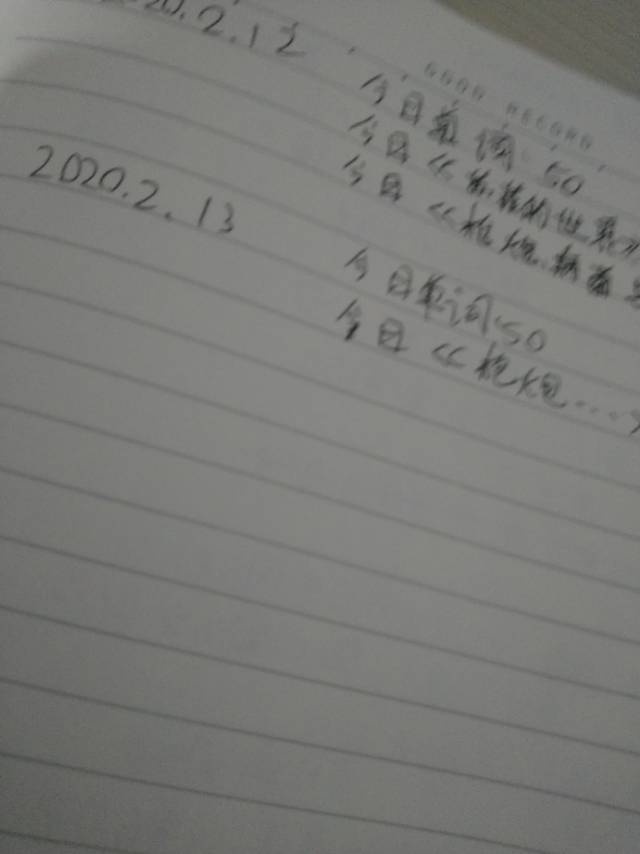 2020.2.12
今日单词 50
今日《苏菲的世界》
今日《枪炮、病菌与
2020.2.13
今日单词:50
今日《枪炮....》